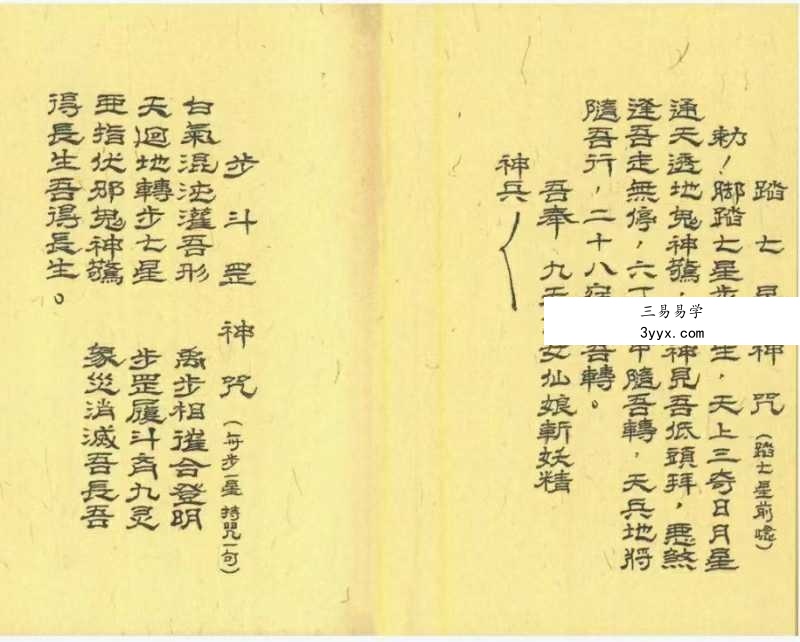 踏七星神咒（踏七星前）
勅！脚踏七星步生，天上三奇日月星
通天透地鬼神驚，神見吾低頭拜，惡煞
逢吾走無停，六丁甲隨吾轉，天兵地將
隨吾行，二十八宿吾轉。
吾奉 九天女仙娘斬妖精
神兵
三易易学
3yyx.com
步斗罡神咒（每步一星 持咒一句）
白氣混沌灌吾形 禹步相催合登明
天迴地轉步七星 步罡履斗齊九灵
亞指伏邪鬼神驚 象災消滅吾長吾
得長生吾得長生。